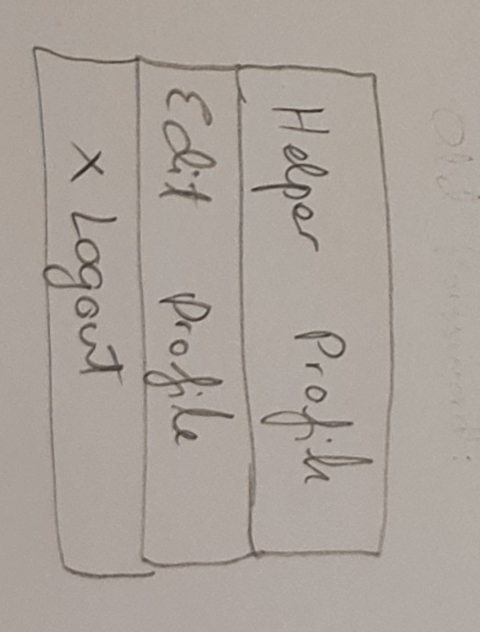 Old Password:
Helper Profile
Edit Profile
x Logout